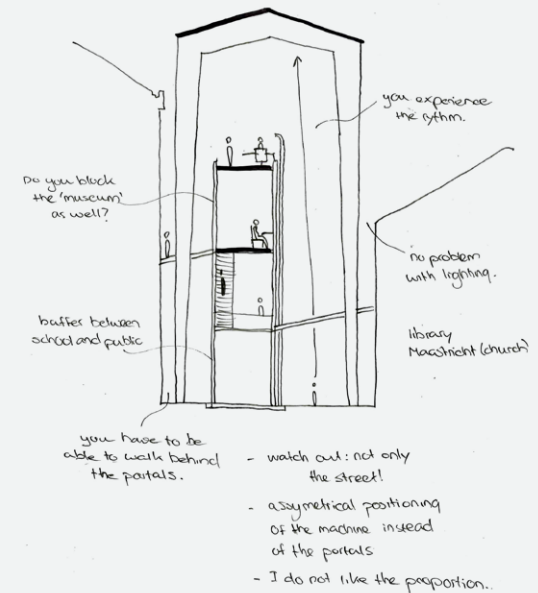 you experience
the rythm.
Do you block
the 'museum'
as well?
no problem
with lighting.
buffer between
school and public
library
Maastricht (church)
you have to be
able to walk behind
the portals.
- watch out: not only
the street!
- assymetrical positioning
of the machine instead
of the portals
- I do not like the proportion..